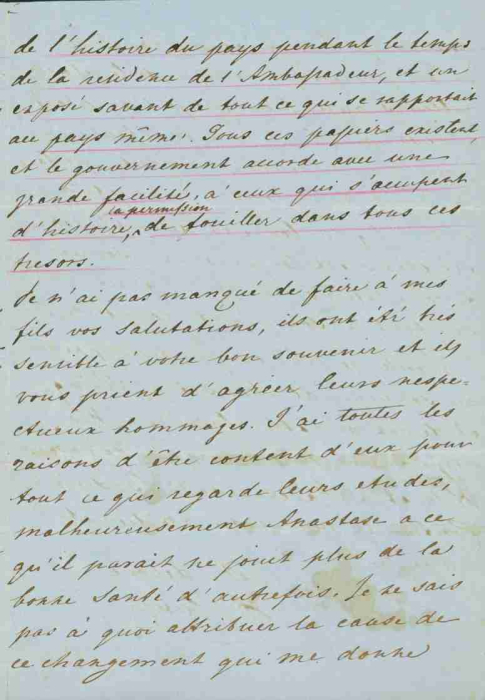 de l'histoire du pays pendant le temps
de la residence de l'Ambassadeur, et un
exposé savant de tout ce qui se rapportait
au pays même. Tous ces papiers existent,
et le gouvernement accorde avec une
grande facilité, à ceux qui s'occupent
la permission
d'histoire, de fouiller dans tous ces
tresors.
Je n'ai pas manqué de faire à mes
fils vos salutations, ils ont été très
sensible à votre bon souvenir et ils
vous prient d'agréer leurs respe=
ctueux hommages. J'ai toutes les
raisons d'être content d'eux pour
tout ce qui regarde leurs etudes,
malheureusement Anastase a ce
qu'il parait ne jouit plus de la
bonne santé d'autrefois. Je ne sais
pas à quoi attribuer la cause de
ce changement qui me donne